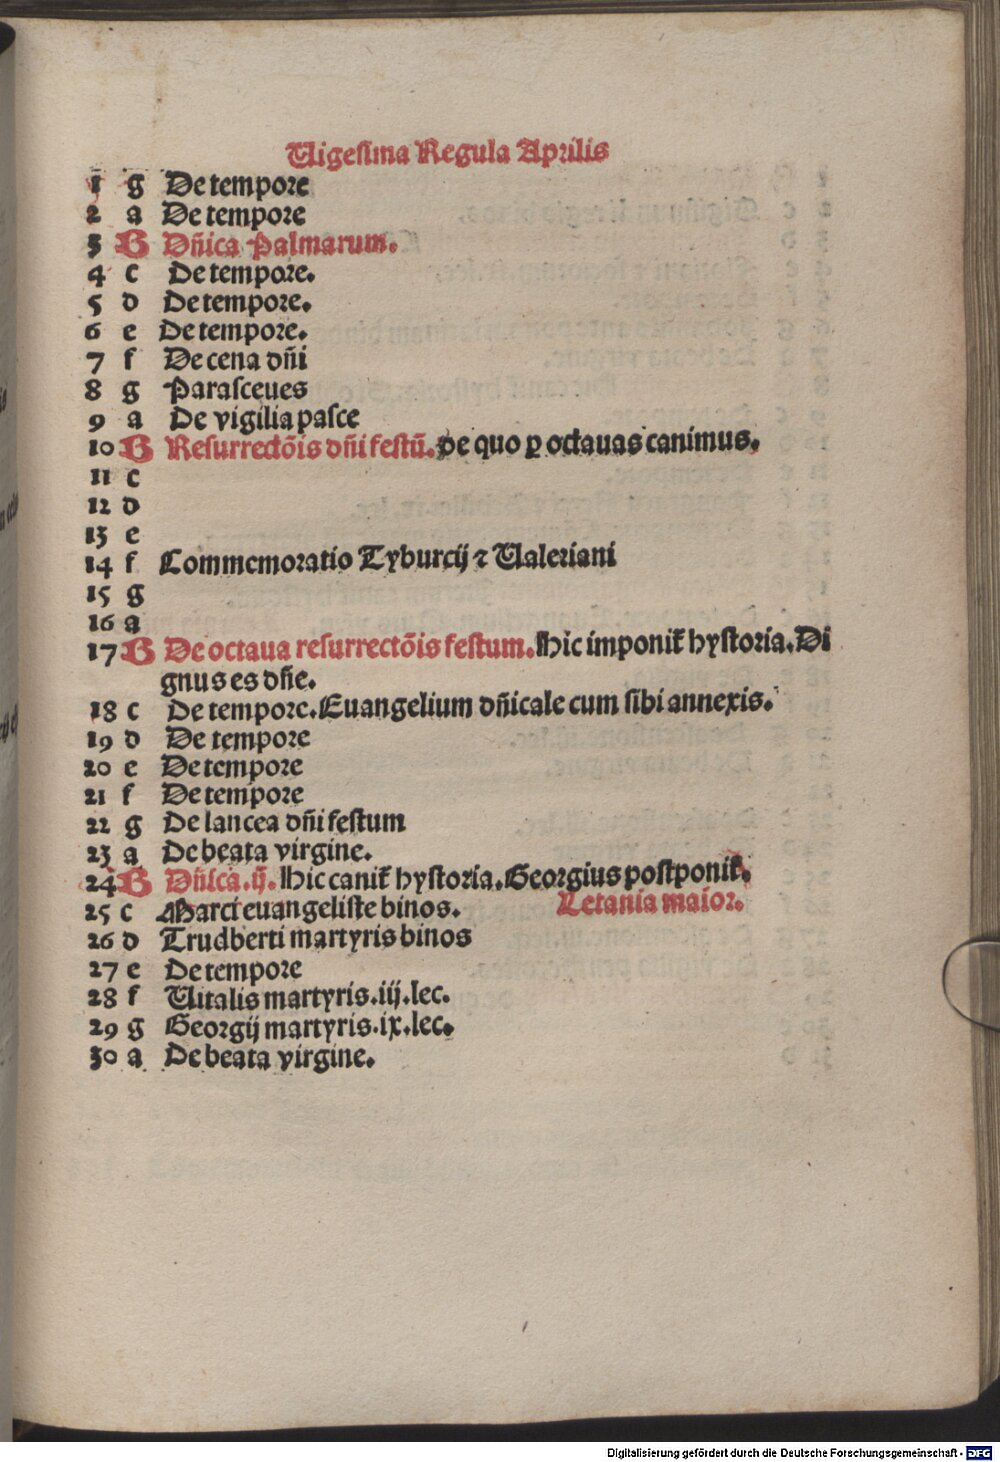 Uigesima Regula Aprilis
1 g De tempore
2 a De tempore
3 B Dñica Palmarum.
4 c De tempore.
5 d De tempore.
6 e De tempore.
7 f De cena dñi
8 g Parasceues
9 a De vigilia pasce
10 B Resurrectõis dñi festũ. De quo ꝑ octauas canimus.
11 c
12 d
13 e
14 f Commemoratio Tyburcij ⁊ Ualeriani
15 g
16 a
17 B De octaua resurrectõis festum. Hic imponit᷑ hystoria. Di
gnus es dñe.
18 c De tempore. Euangelium dñicale cum sibi annexis.
19 d De tempore
20 e De tempore
21 f De tempore
22 g De lancea dñi festum
23 a De beata virgine.
24 B Dñica. ij. Hic canit᷑ hystoria. Georgius postponit᷑.
25 c Marci euangeliste binos. Letania maior.
26 d Trudberti martyris binos
27 e De tempore
28 f Uitalis martyris. iij. lec.
29 g Georgij martyris. ix. lec.
30 a De beata virgine.
Digitalisierung gefördert durch die Deutsche Forschungsgemeinschaft - DFG